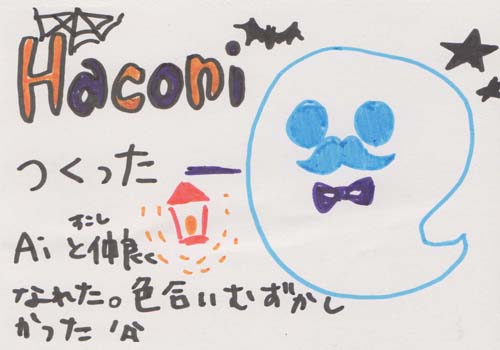 Haconi
つくった
すこし
Aiと仲良く
なれた。色合いむずかし
かった'A`